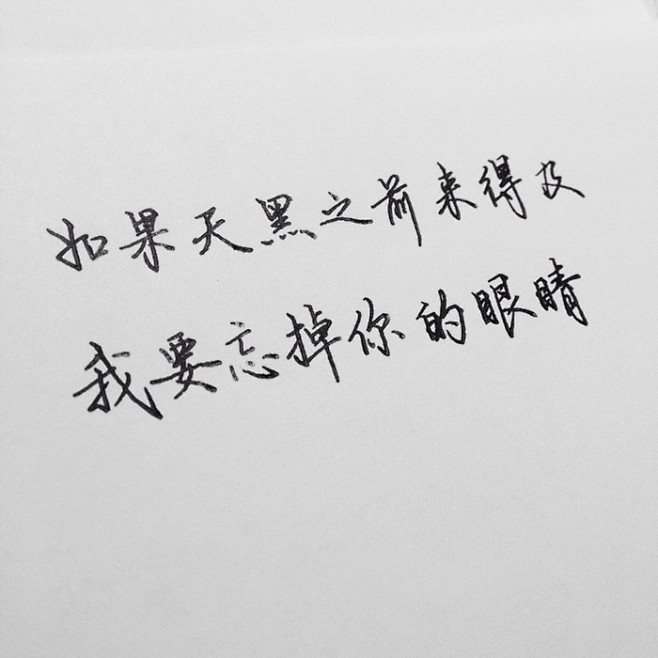 如果天黑之前来得及
我要忘掉你的眼睛